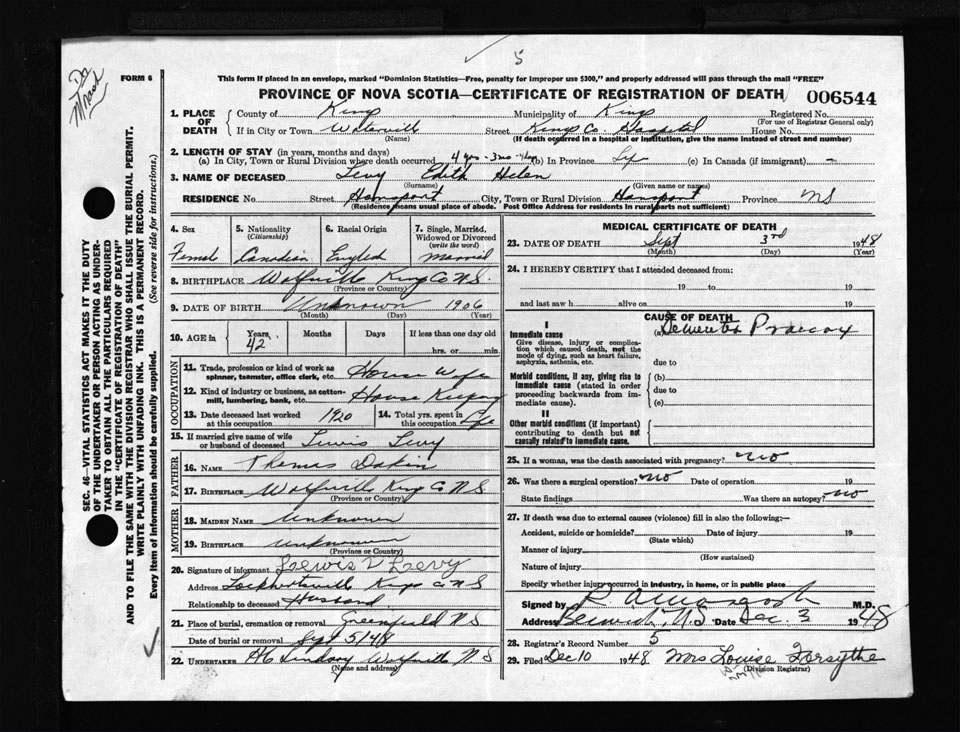 5
FORM 6
This form if placed in an envelope, marked "Dominion Statistics—Free, penalty for improper use $300," and properly addressed will pass through the mail "FREE"
PROVINCE OF NOVA SCOTIA—CERTIFICATE OF REGISTRATION OF DEATH 006544
1. PLACE OF DEATH County of Kings Municipality of Kings Registered No.
(For use of Registrar General only)
If in City or Town Waterville Street Kings Co. Hospital House No.
(Name) (If death occurred in a hospital or institution, give the name instead of street and number)
2. LENGTH OF STAY (in years, months and days)
(a) In City, Town or Rural Division where death occurred 4 yrs - 3 mo (b) In Province Life (c) In Canada (if immigrant) -
3. NAME OF DECEASED Levy Edith Helen
(Surname) (Given name or names)
RESIDENCE No. Street Hantsport City, Town or Rural Division Hantsport Province NS
(Residence means usual place of abode. Post Office Address for residents in rural parts not sufficient)
4. Sex 5. Nationality (Citizenship) 6. Racial Origin 7. Single, Married, Widowed or Divorced (write the word)
Female Canadian English Married
8. BIRTHPLACE Wolfville Kings Co N.S.
(Province or Country)
9. DATE OF BIRTH Unknown 1906
(Month) (Day) (Year)
10. AGE in Years Months Days If less than one day old
42 hrs. or min.
OCCUPATION
11. Trade, profession or kind of work as spinner, teamster, office clerk, etc. House Wife
12. Kind of industry or business, as cotton-mill, lumbering, bank, etc. House Keeping
13. Date deceased last worked at this occupation 1920 14. Total yrs. spent in this occupation Life
15. If married give name of wife or husband of deceased Lewis Levy
FATHER
16. NAME Thomas Dakin
17. BIRTHPLACE Wolfville Kings Co N.S.
(Province or Country)
MOTHER
18. MAIDEN NAME Unknown
19. BIRTHPLACE Unknown
(Province or Country)
20. Signature of informant Lewis V Levy
Address Lockhartville Kings Co N.S
Relationship to deceased Husband
21. Place of burial, cremation or removal Greenfield N.S
Date of burial or removal Sept 5/48
22. UNDERTAKER Lindsay Wolfville N.S
(Name and address)
MEDICAL CERTIFICATE OF DEATH
23. DATE OF DEATH Sept 3rd 1948
(Month) (Day) (Year)
24. I HEREBY CERTIFY that I attended deceased from:
19 to 19
and last saw h alive on 19
CAUSE OF DEATH
I
Immediate cause (a) Dementia Praecox
Give disease, injury or complication which caused death, not the mode of dying, such as heart failure, asphyxia, asthenia, etc.
due to
Morbid conditions, if any, giving rise to immediate cause (stated in order proceeding backwards from immediate cause).
(b)
due to
(c)
II
Other morbid conditions (if important) contributing to death but not causally related to immediate cause.
25. If a woman, was the death associated with pregnancy? no
26. Was there a surgical operation? no Date of operation 19
State findings Was there an autopsy? no
27. If death was due to external causes (violence) fill in also the following:—
Accident, suicide or homicide? Date of injury 19
(State which)
Manner of injury
(How sustained)
Nature of injury
Specify whether injury occurred in industry, in home, or in public place
Signed by M.D.
Address Berwick, N.S Date Dec. 3 1948
28. Registrar's Record Number 5
29. Filed Dec 10 1948 Mrs Louise Forsythe
(Division Registrar)
SEC. 46—VITAL STATISTICS ACT MAKES IT THE DUTY
OF THE UNDERTAKER OR PERSON ACTING AS UNDER-
TAKER TO OBTAIN ALL THE PARTICULARS REQUIRED
IN THE "CERTIFICATE OF REGISTRATION OF DEATH"
AND TO FILE THE SAME WITH THE DIVISION REGISTRAR WHO SHALL ISSUE THE BURIAL PERMIT.
WRITE PLAINLY WITH UNFADING INK. THIS IS A PERMANENT RECORD.
Every item of information should be carefully supplied. (See reverse side for instructions.)